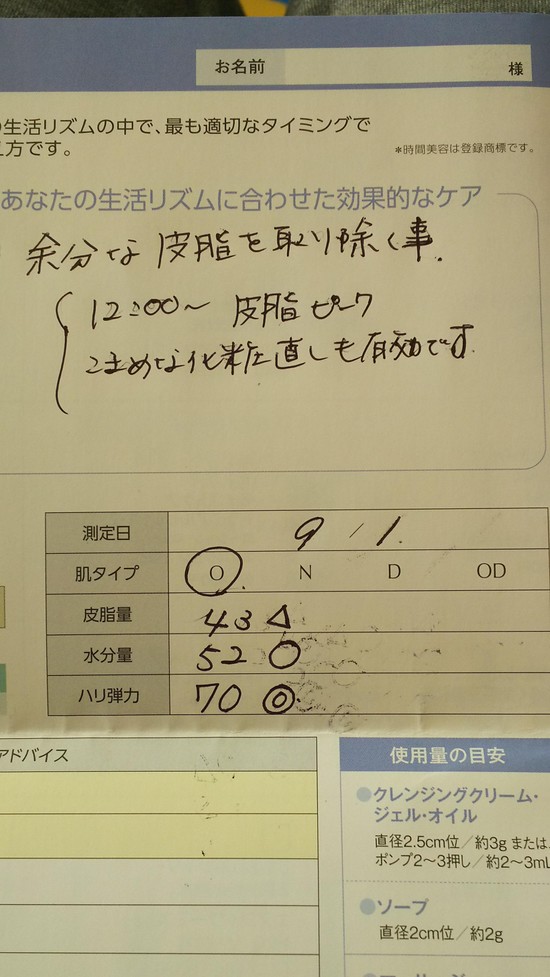 お名前 様
の生活リズムの中で、最も適切なタイミングで
え方です。
*時間美容は登録商標です。
あなたの生活リズムに合わせた効果的なケア
余分な皮脂を取り除く事.
12:00〜 皮脂ピーク
こまめな化粧直しも有効です
測定日 9/1.
肌タイプ O N D OD
皮脂量 43 △
水分量 52 ○
ハリ弾力 70 ◎
アドバイス
使用量の目安
●クレンジングクリーム・
ジェル・オイル
直径2.5cm位/約3g または、
ポンプ2〜3押し/約2〜3mL
●ソープ
直径2cm位/約2g